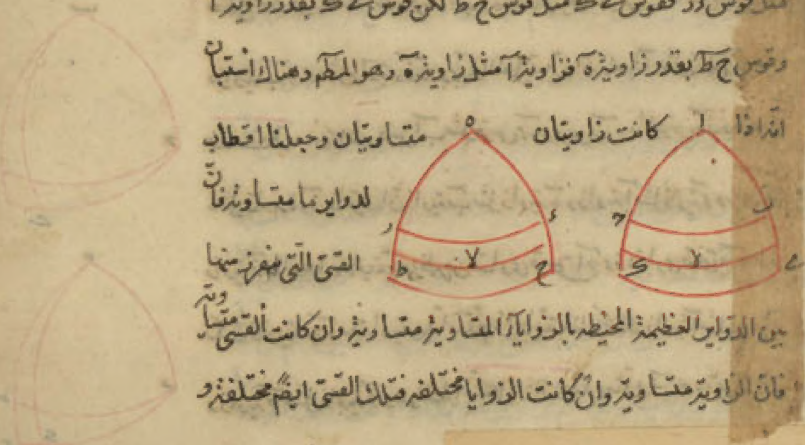 مثل قوس د ر فقوس ي ك مثل قوس ح ط لكن قوس ي ك بقدر زاوية ا
وقوس ح ط بقدر زاوية ه فزاوية ا مثل زاوية ه وهو المط وهناك استبان
انه اذا كانت زاويتان متساويتان وجعلنا اقطاب
لدواير ما متساوية فان
القسي التي تنفرز منها
بين الدواير العظيمة المحيطه بالزوايا المتساوية متساوية وان كانت القسي متساوية
فان الزاوية متساوية وان كانت الزوايا مختلفه فتلك القسي ايضا مختلفة و
ا
ب
ج
ي
ك
لا
ه
د
ر
ح
ط
لا